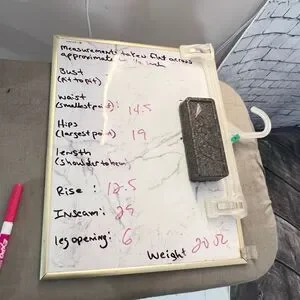 Measurements taken flat across
approximate
Bust
(Pit to pit)
Waist
(smallest point): 14.5
Hips
(largest point) 19
length
(shoulder to hem)
Rise : 12.5
Inseam: 29
leg opening: 6
Weight 20 oz
EXPO